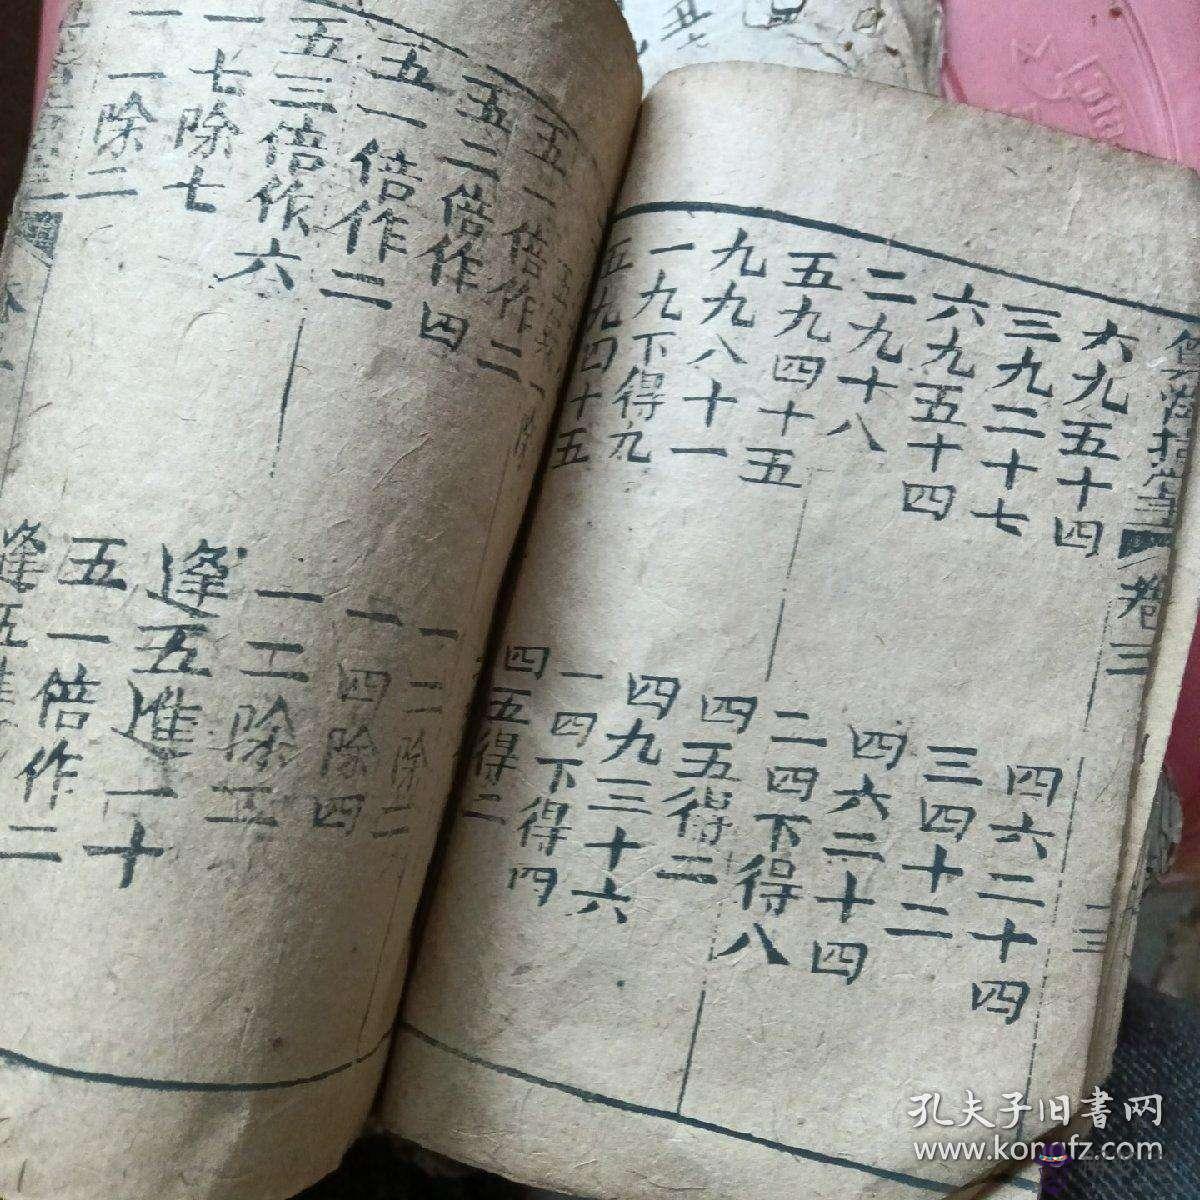 六九五十四
三九二十七
六九五十四
二九十八
五九四十五
九九八十一
一九下得九
五九四十五
四六二十四
三四十二
四六二十四
二四下得八
四五得二
四九三十六
一四下得四
四五得二
卷三
十三
五一倍作二
五二倍作四
五一倍作二
五三倍作六
一七除七
一一除二
一二除二
一四除四
一二除五
逢五進一十
五一倍作二
孔夫子旧書网
www.kongfz.com